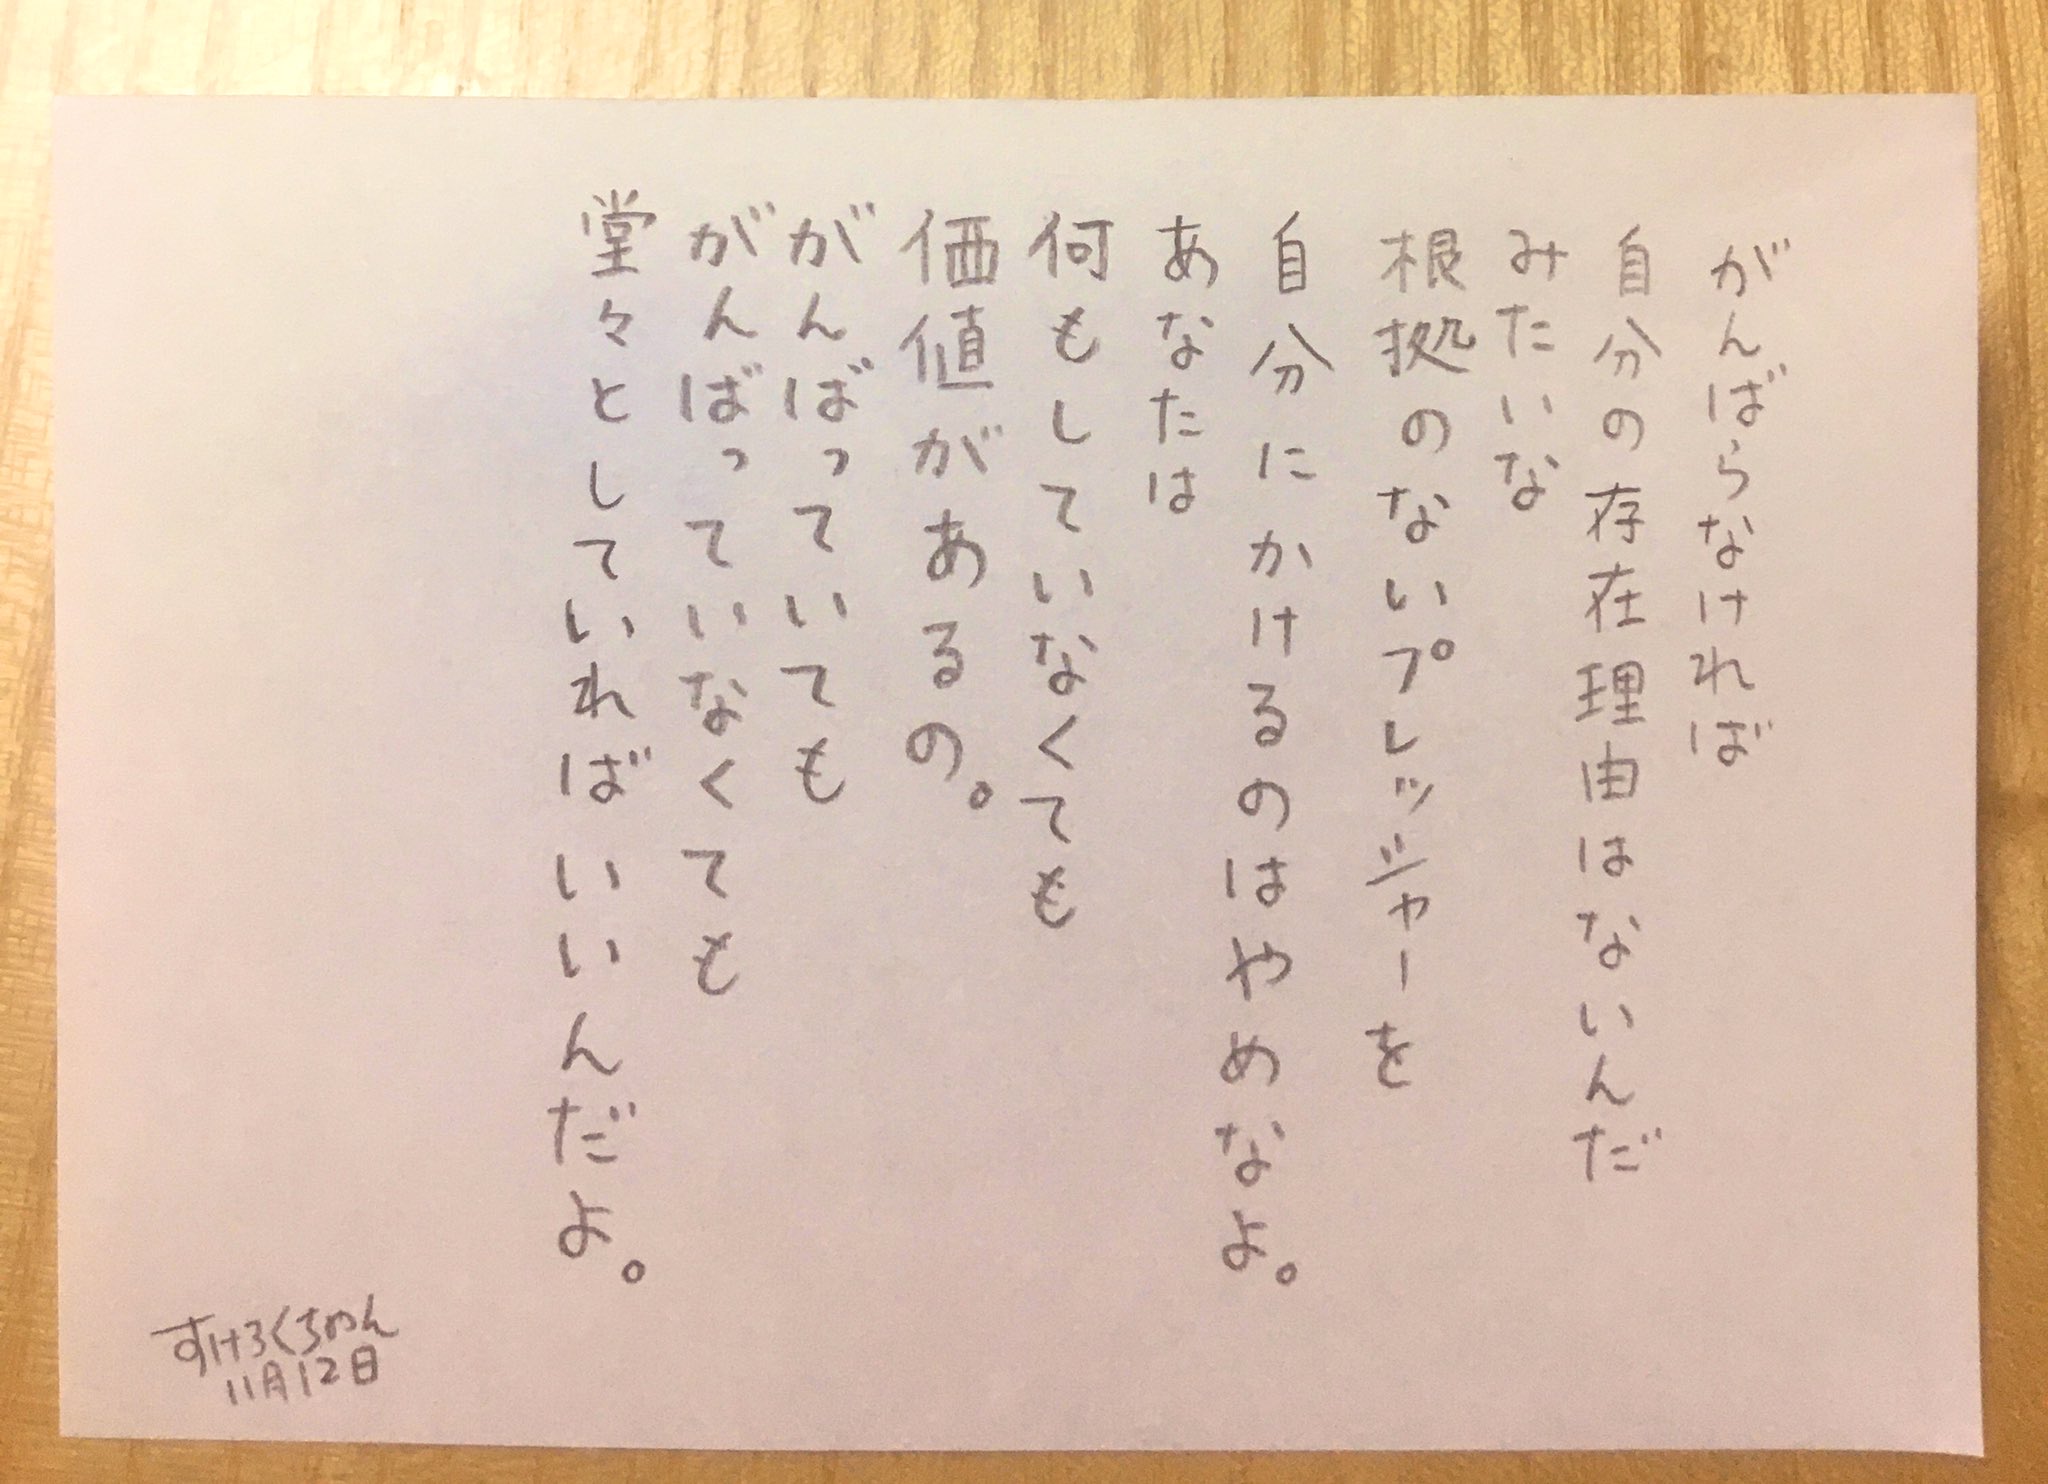 がんばらなければ
自分の存在理由はないんだ
みたいな
根拠のないプレッシャーを
自分にかけるのはやめなよ。
あなたは
何もしていなくても
価値があるの。
がんばっていても
がんばっていなくても
堂々としていればいいんだよ。
すけろくちゃん
11月12日